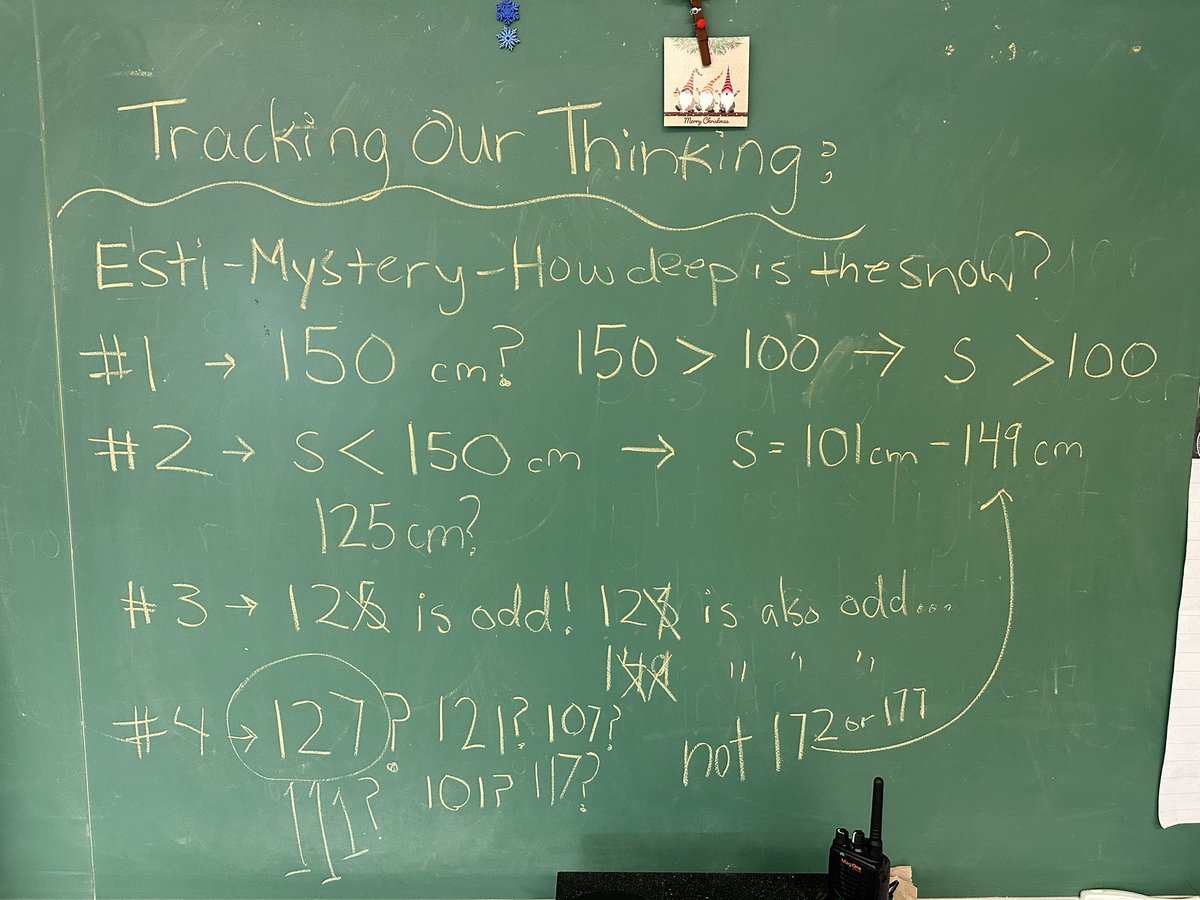 Merry Christmas
Tracking Our Thinking:
Esti-Mystery-How deep is the snow?
#1 → 150 cm? 150 > 100 → s > 100
#2 → s < 150 cm → s = 101cm - 149cm
125cm?
#3 → 125 is odd! 123 is also odd...
149 " " "
#4 → 127? 121? 107? not 172 or 177
111? 101? 117?
MagOne